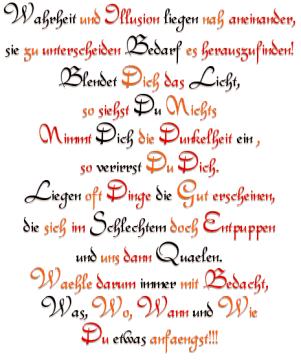 Wahrheit und Illusion liegen nah aneinander,
sie zu unterscheiden Bedarf es herauszufinden!
Blendet Dich das Licht,
so siehst Du Nichts
Nimmt Dich die Dunkelheit ein ,
so verirrst Du Dich.
Liegen oft Dinge die Gut erscheinen,
die sich im Schlechtem doch Entpuppen
und uns dann Quaelen.
Waehle darum immer mit Bedacht,
Was, Wo, Wann und Wie
Du etwas anfaengst!!!